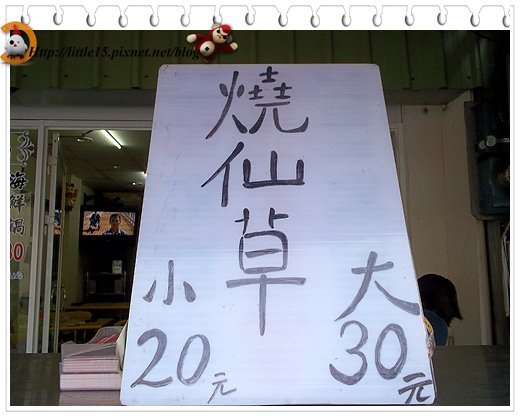 Http://little15.pixnet.net/blog
燒仙草
小 大
20元 30元
海鮮鍋